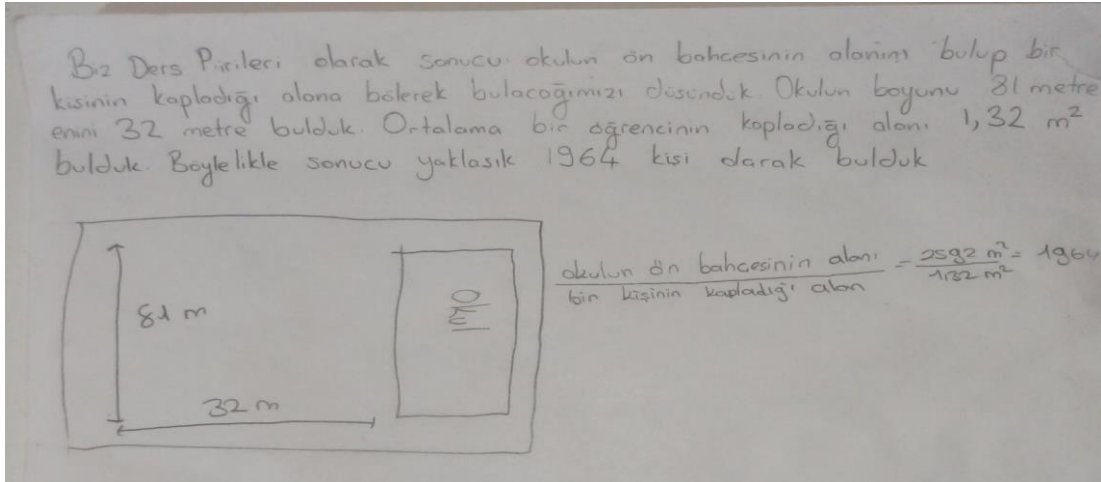 Biz Ders Pirileri olarak sonucu okulun ön bahcesinin alanını bulup bir
kisinin kapladığı alana bölerek bulacoğımızı düsündük. Okulun boyunu 81 metre
enini 32 metre bulduk. Ortalama bir öğrencinin kapladığı alanı 1,32 m²
bulduk. Böylelikle sonucu yaklasık 1964 kisi olarak bulduk
81 m
32 m
okulun ön bahcesinin alanı / bir kişinin kapladığı alan = 2592 m² / 1,32 m² = 1964